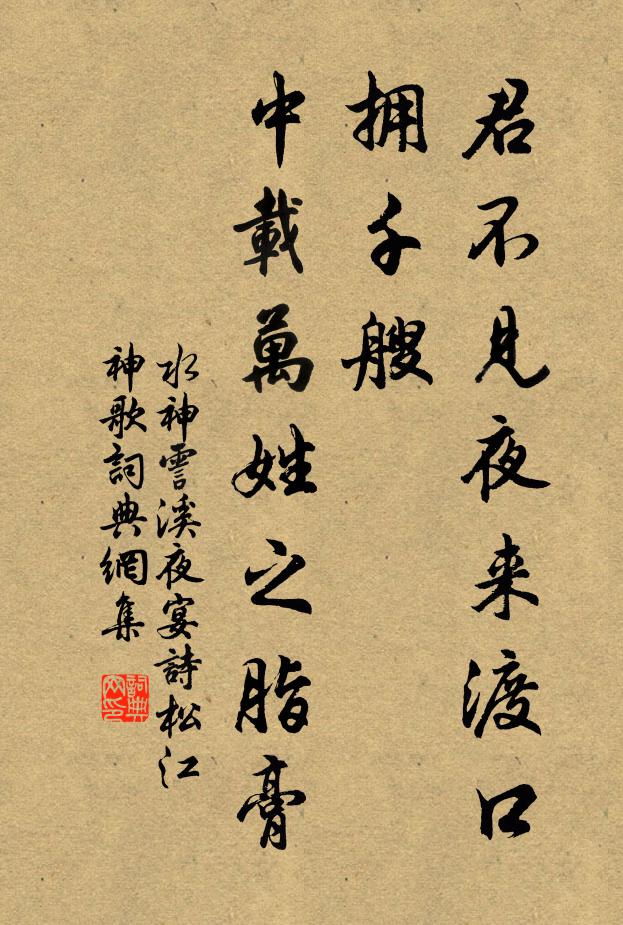 君不見夜来渡口
拥千艘
中載萬姓之脂膏
水神霅溪夜宴詩松江
神歌詞典網集
詞典